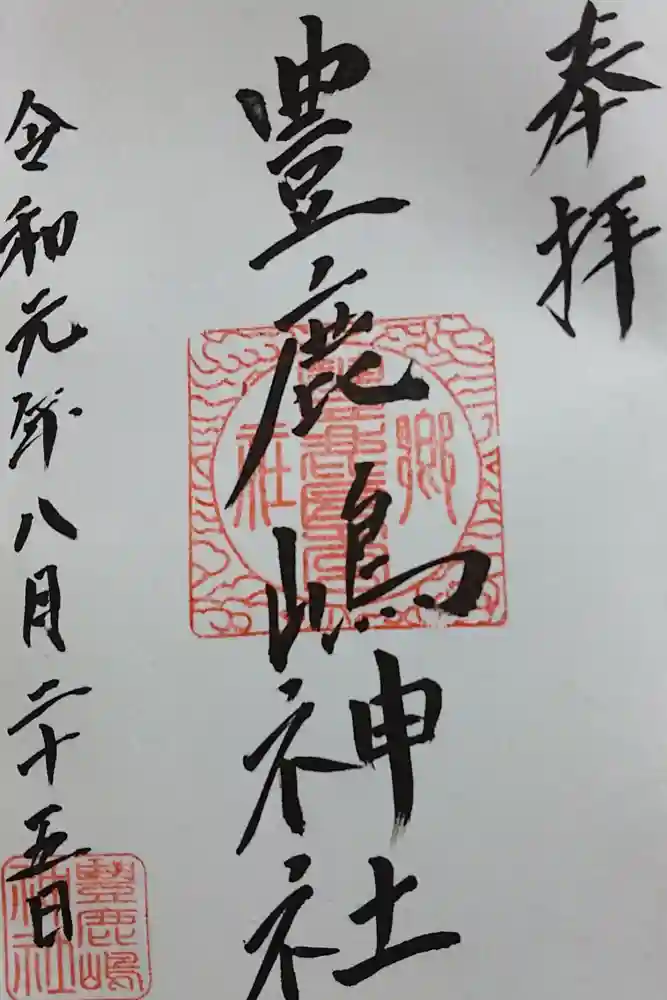 奉拝
豊鹿嶋神社
令和元年八月二十五日
豊鹿嶋
神社